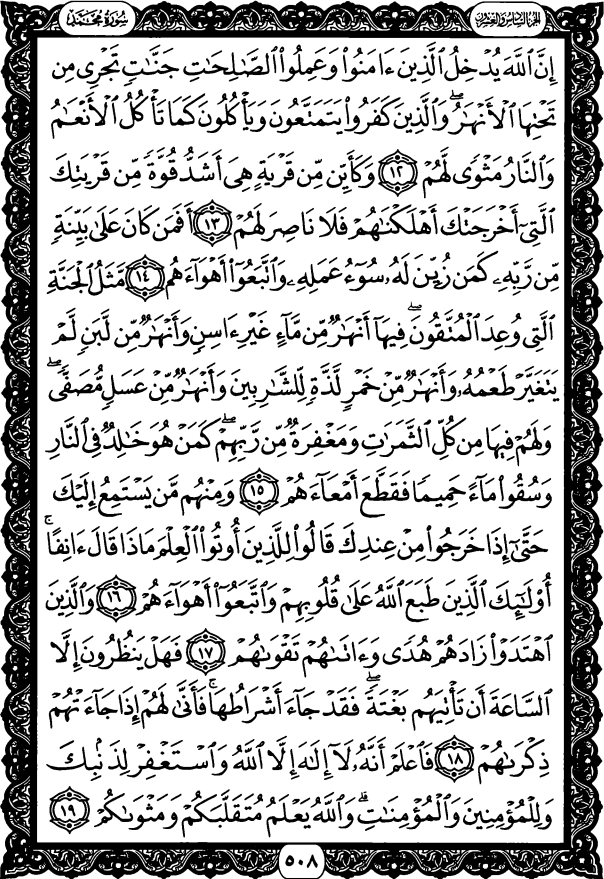 الجزء السادس والعشرون سورة محمد
إِنَّ ٱللَّهَ يُدْخِلُ ٱلَّذِينَ ءَامَنُوا۟ وَعَمِلُوا۟ ٱلصَّـٰلِحَـٰتِ جَنَّـٰتٍ تَجْرِى مِن
تَحْتِهَا ٱلْأَنْهَـٰرُ ۖ وَٱلَّذِينَ كَفَرُوا۟ يَتَمَتَّعُونَ وَيَأْكُلُونَ كَمَا تَأْكُلُ ٱلْأَنْعَـٰمُ
وَٱلنَّارُ مَثْوًى لَّهُمْ ١٢ وَكَأَيِّن مِّن قَرْيَةٍ هِىَ أَشَدُّ قُوَّةً مِّن قَرْيَتِكَ
ٱلَّتِىٓ أَخْرَجَتْكَ أَهْلَكْنَـٰهُمْ فَلَا نَاصِرَ لَهُمْ ١٣ أَفَمَن كَانَ عَلَىٰ بَيِّنَةٍ
مِّن رَّبِّهِۦ كَمَن زُيِّنَ لَهُۥ سُوٓءُ عَمَلِهِۦ وَٱتَّبَعُوٓا۟ أَهْوَآءَهُم ١٤ مَّثَلُ ٱلْجَنَّةِ
ٱلَّتِى وُعِدَ ٱلْمُتَّقُونَ ۖ فِيهَآ أَنْهَـٰرٌ مِّن مَّآءٍ غَيْرِ ءَاسِنٍ وَأَنْهَـٰرٌ مِّن لَّبَنٍ لَّمْ
يَتَغَيَّرْ طَعْمُهُۥ وَأَنْهَـٰرٌ مِّنْ خَمْرٍ لَّذَّةٍ لِّلشَّـٰرِبِينَ وَأَنْهَـٰرٌ مِّنْ عَسَلٍ مُّصَفًّى ۖ
وَلَهُمْ فِيهَا مِن كُلِّ ٱلثَّمَرَٰتِ وَمَغْفِرَةٌ مِّن رَّبِّهِمْ ۖ كَمَنْ هُوَ خَـٰلِدٌ فِى ٱلنَّارِ
وَسُقُوا۟ مَآءً حَمِيمًا فَقَطَّعَ أَمْعَآءَهُمْ ١٥ وَمِنْهُم مَّن يَسْتَمِعُ إِلَيْكَ
حَتَّىٰٓ إِذَا خَرَجُوا۟ مِنْ عِندِكَ قَالُوا۟ لِلَّذِينَ أُوتُوا۟ ٱلْعِلْمَ مَاذَا قَالَ ءَانِفًا ۚ
أُو۟لَـٰٓئِكَ ٱلَّذِينَ طَبَعَ ٱللَّهُ عَلَىٰ قُلُوبِهِمْ وَٱتَّبَعُوٓا۟ أَهْوَآءَهُمْ ١٦ وَٱلَّذِينَ
ٱهْتَدَوْا۟ زَادَهُمْ هُدًى وَءَاتَىٰهُمْ تَقْوَىٰهُمْ ١٧ فَهَلْ يَنظُرُونَ إِلَّا
ٱلسَّاعَةَ أَن تَأْتِيَهُم بَغْتَةً ۖ فَقَدْ جَآءَ أَشْرَاطُهَا ۚ فَأَنَّىٰ لَهُمْ إِذَا جَآءَتْهُمْ
ذِكْرَىٰهُمْ ١٨ فَٱعْلَمْ أَنَّهُۥ لَآ إِلَـٰهَ إِلَّا ٱللَّهُ وَٱسْتَغْفِرْ لِذَنۢبِكَ
وَلِلْمُؤْمِنِينَ وَٱلْمُؤْمِنَـٰتِ ۗ وَٱللَّهُ يَعْلَمُ مُتَقَلَّبَكُمْ وَمَثْوَىٰكُمْ ١٩
٥٠٨